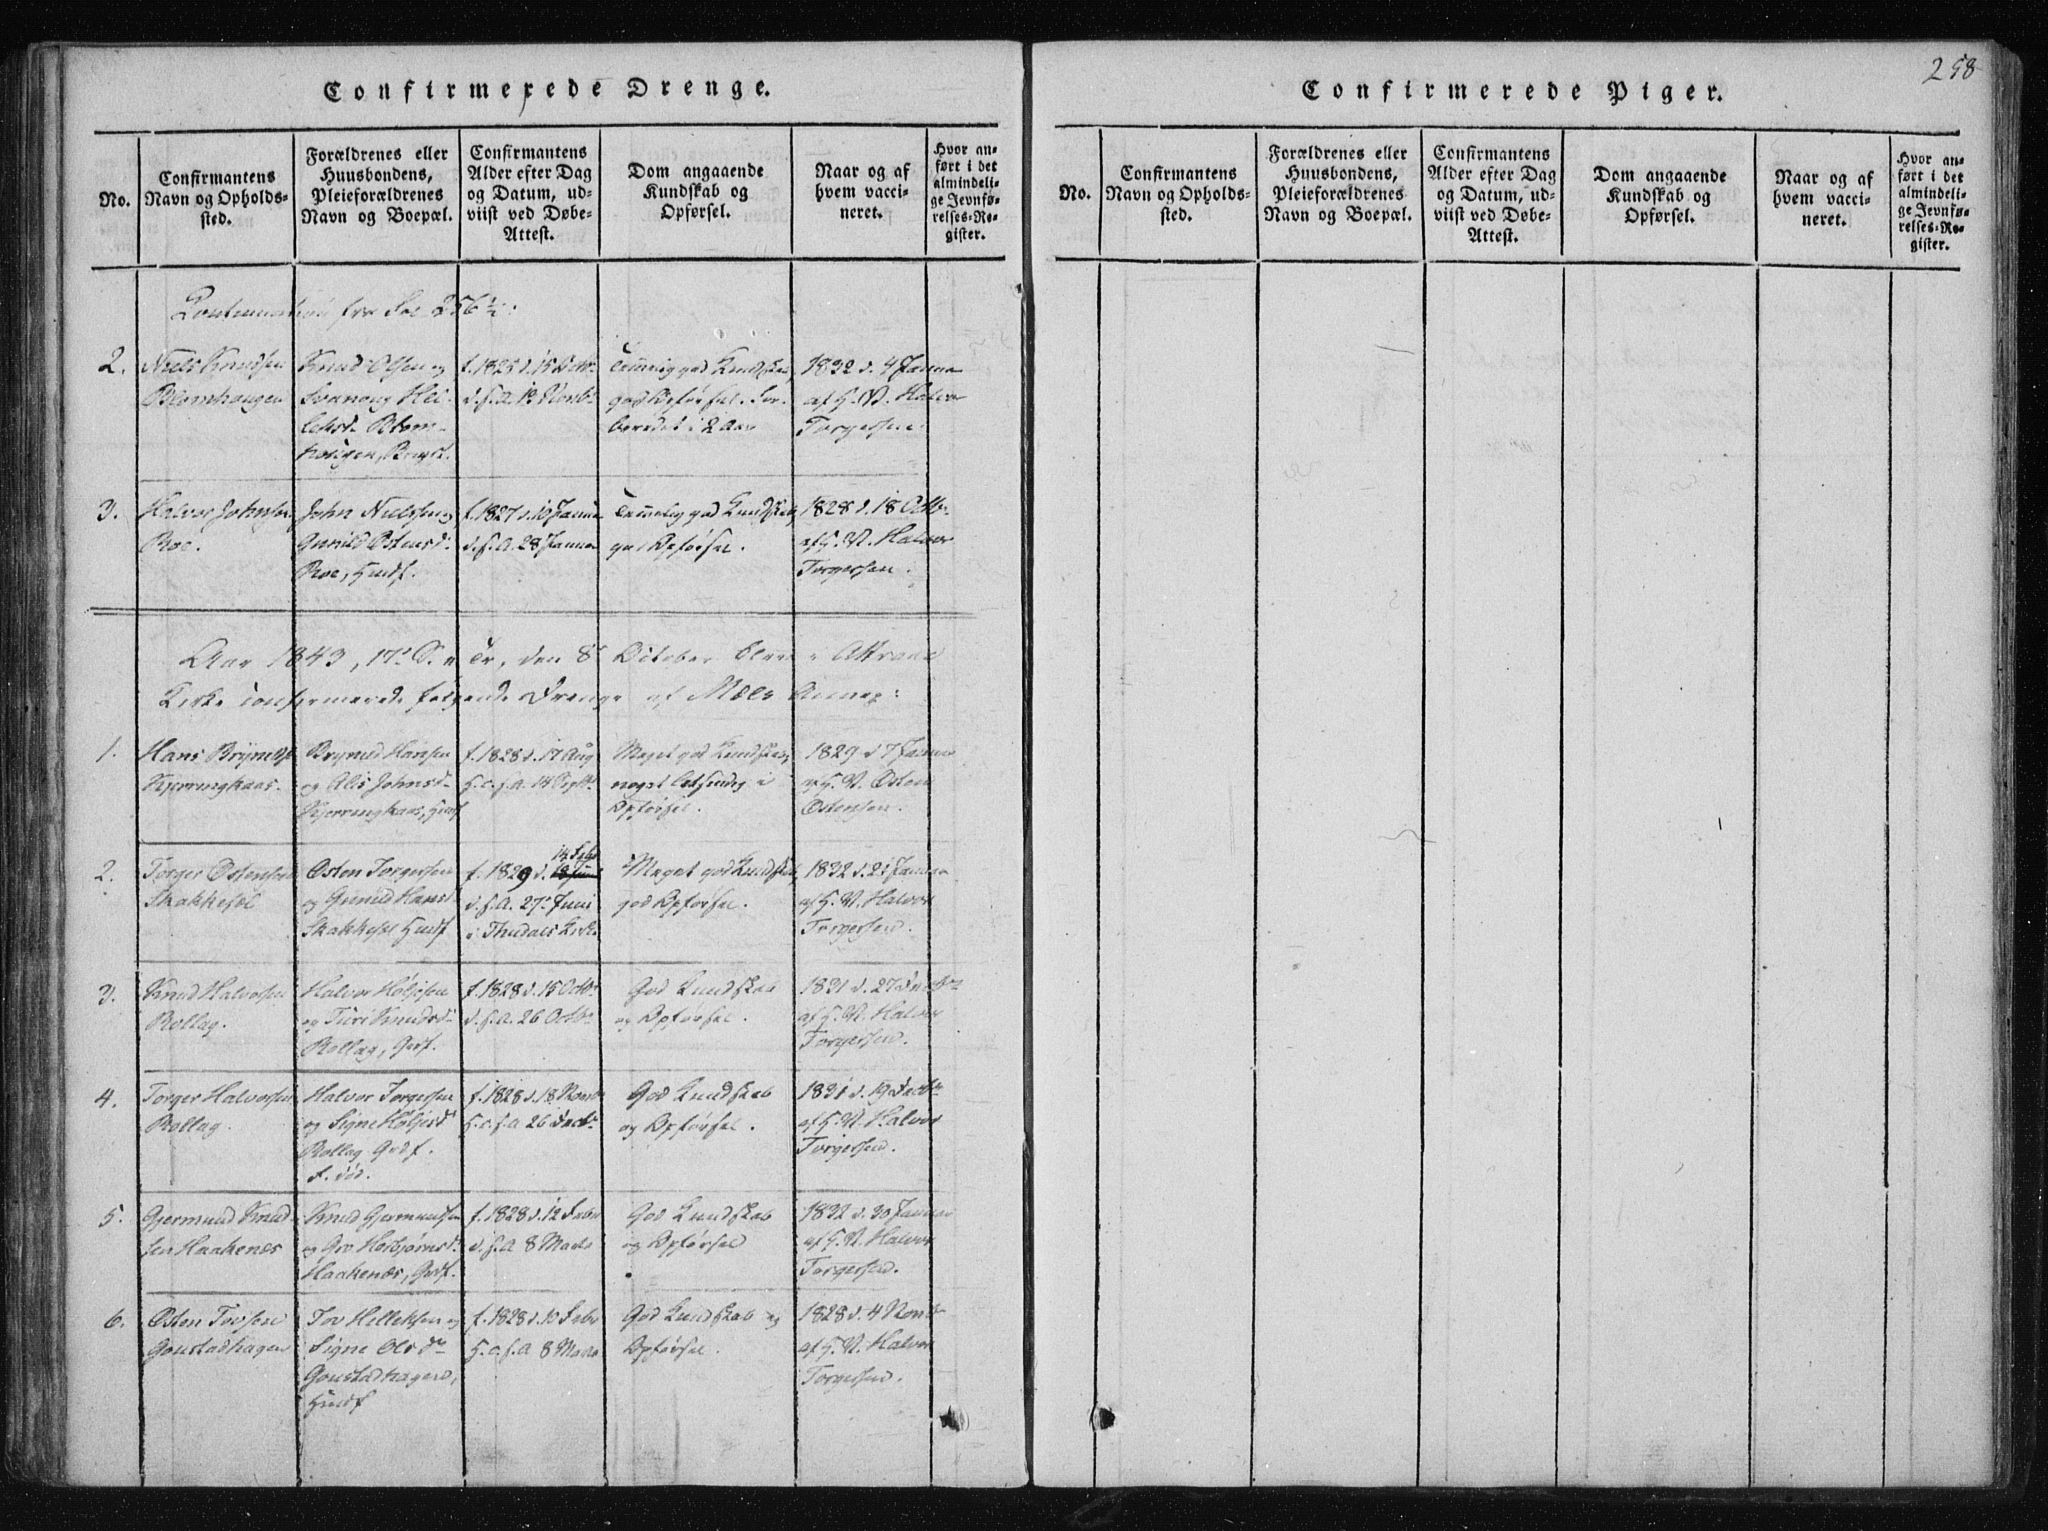 Confirmerede Drenge.
No.
Confirmantens
Navn og Opholds-
sted.
Forældrenes eller
Huusbondens,
Pleieforældrenes
Navn og Boepæl.
Confirmantens
Alder efter Dag
og Datum, ud-
viist ved Døbe-
Attest.
Dom angaaende
Kundskab og
Opførsel.
Naar og af
hvem vacci-
neret.
Hvor an-
ført i det
almindeli-
ge Jevnfø-
relses-Re-
gister.
fra Fol 256½:
2.
Niels Knudsen
Blomhaugen
Knud Olsen og
Svanaug
Blom-
haugen,
f. 1825 d. 15 Octbr
d. s. A. 13 Novbr
Temmelig god Kundskab,
god Opførsel. For-
beredet i 2 Aar
1832 d. 4 Januar
af H. V. Halvor
Torgersen.
3.
Halvor Johnsen
Roe.
John Nielsen og
Gunild Ostensd.
Roe, Huusf.
f. 1827 d. 10 Januar
d. s. A. 28 Januar
Temmelig god Kundskab,
god Opførsel.
1828 d. 18 Octbr
af H. V. Halvor
Torgersen.
Aar 1843, 17. S. e. Tr., den 8 October bleve i Attraae
Kirke confirmerede følgende Drenge af Mæls Annex:
1.
Hans Brynilds.
Kjerringkaas.
Brynild Hansen
og Alis Johnsd.
Kjerringkaas, Huusf
f. 1828 d. 17 Aug
H. c. s. A. 14 Septr.
Meget god Kundskab,
noget letsindig i
Opførsel.
1829 d 7 Januar
af H. V. Osten
Ostensen.
2.
Torger Ostensen
Skakkesel
Osten Torgersen
og Gunild Hansd.
Skakkesel Huusf
14 Febr
f. 1829 d.
d. s. A. 27. Juni
i Thudals Kirke
Meget god Kundskab,
god Opførsel.
1832 d. 21 Januar
af H. V. Halvor
Torgersen.
3.
Knud Halvorsen
Rollag.
Halvor Høljesen
og Turi Knudsd.
Rollag, Grdf.
f. 1828 d. 15 Octbr
d. s. A. 26 Octbr
God Kundskab
og Opførsel.
1831 d. 27 Decbr
af H. V. Halvor
Torgersen.
4.
Torger Halvorsen
Rollag.
Halvor Torgersen
og Signe Høljesd
Rollag Grdf.
F. død.
f. 1828 d. 18 Novbr
H. c. s. A. 26 Decbr.
God Kundskab
og Opførsel.
1831 d. 19 Decbr
af H. V. Halvor
Torgersen.
5.
Gjermund Knud-
sen Haakenæs
Knud Gjermundsen
og Gro Herbjørnsd.
Haakenæs, Grdf.
f. 1828 d. 12 Febr
d. s. A 8 Marts
God Kundskab
og Opførsel
1832 d. 30 Januar
af H. V. Halvor
Torgersen.
6.
Østen Tovsen
Goustadhagen
Tov Helleksen og
Signe Olsdr
Goustadhagen,
Huusf
f. 1828 d. 10 Febr
H. c. s. A 8 Marts
God Kundskab og
Opførsel.
1828 d. 4 Novbr
af H. V. Halvor
Torgersen.
258
Confirmerede Piger.
No.
Confirmantens
Navn og Opholds-
sted.
Forældrenes eller
Huusbondens,
Pleieforældrenes
Navn og Boepæl.
Confirmantens
Alder efter Dag
og Datum, ud-
viist ved Døbe-
Attest.
Dom angaaende
Kundskab og
Opførsel.
Naar og af
hvem vacci-
neret.
Hvor an-
ført i det
almindeli-
ge Jevnfø-
relses-Re-
gister.